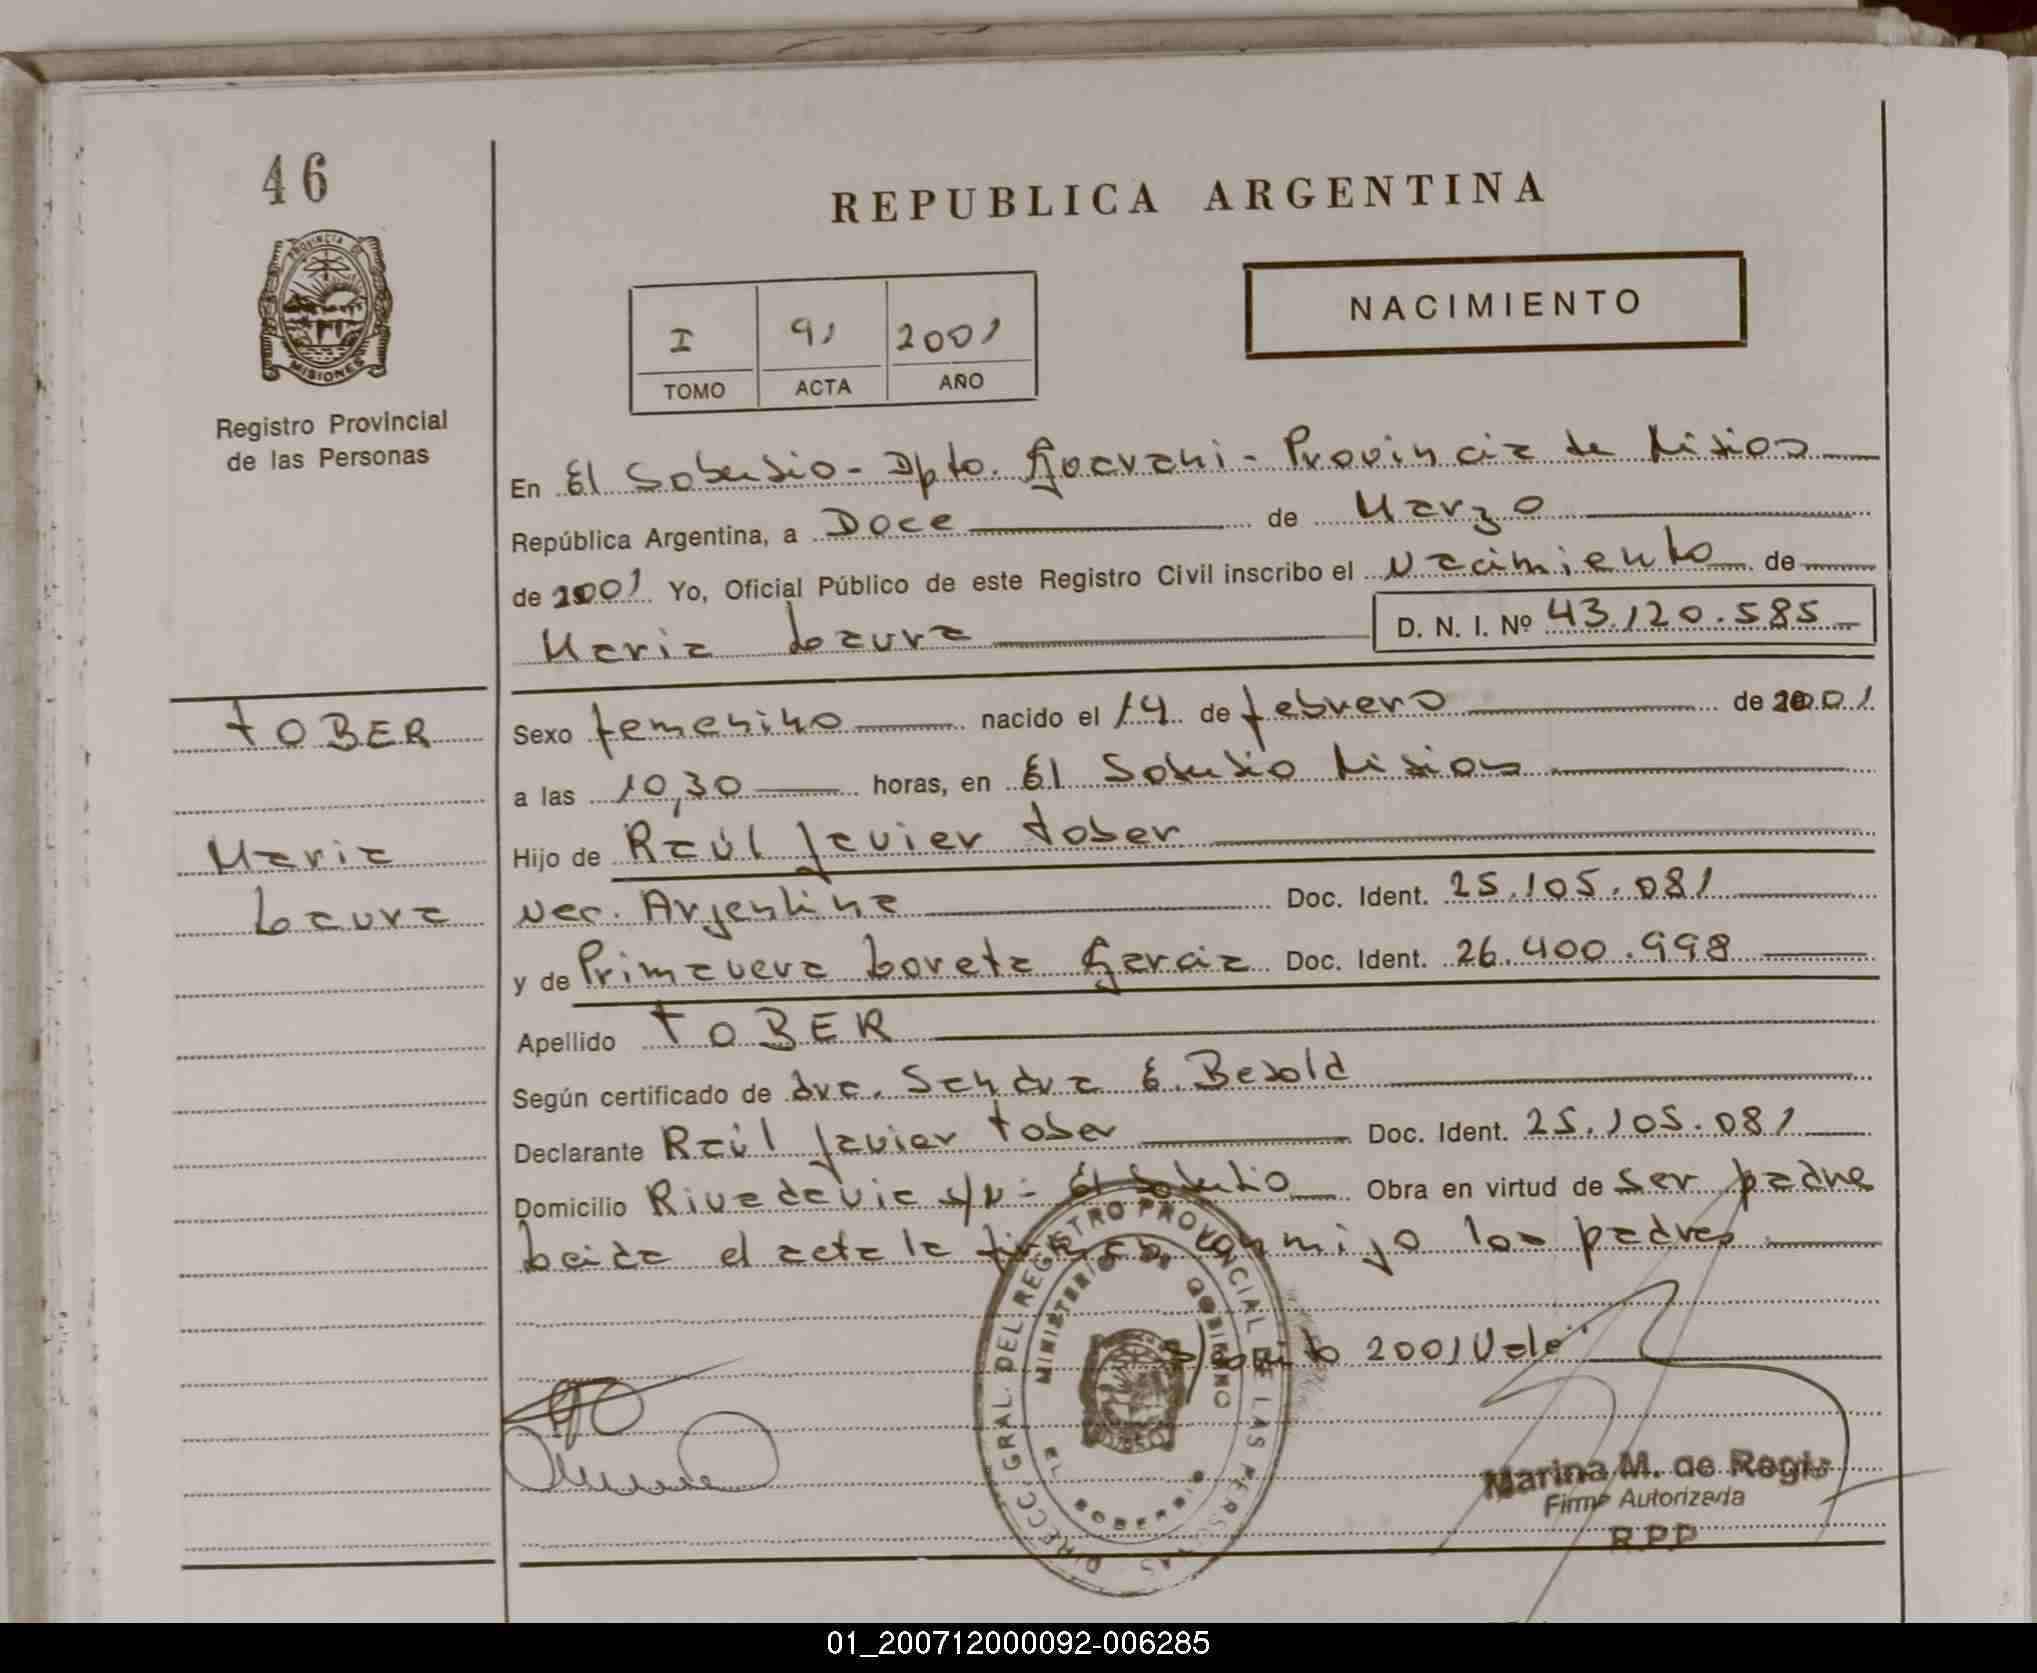 46
REPUBLICA ARGENTINA
PROVINCIA DE
MISIONES
NACIMIENTO
I 91 2001
TOMO ACTA AÑO
Registro Provincial
de las Personas
En El Soberbio - Dpto. Guarani - Provincia de Misiones
República Argentina, a Doce de Marzo
de 2001 Yo, Oficial Público de este Registro Civil inscribo el Nacimiento de
Maria Laura D. N. I. Nº 43.120.585
TOBER
Maria
Laura
Sexo femenino nacido el 14 de febrero de 2001
a las 10,30 horas, en El Soberbio Misiones
Hijo de Raúl Javier Tober
Nac. Argentina Doc. Ident. 25.105.081
y de Primavera Loreta Garcia Doc. Ident. 26.400.998
Apellido TOBER
Según certificado de dra. Sandra E. Besold
Declarante Raúl Javier Tober Doc. Ident. 25.105.081
Domicilio Rivadavia s/n - El Soberbio Obra en virtud de ser padre
Leida el acta la firman conmigo los padres
S/ 2001 Vale
DIRECC. GRAL. DEL REGISTRO PROVINCIAL DE LAS PERSONAS
MINISTERIO DE GOBIERNO
EL SOBERBIO
Marina M. de Regis
Firma Autorizada
R.P.P
01_200712000092-006285